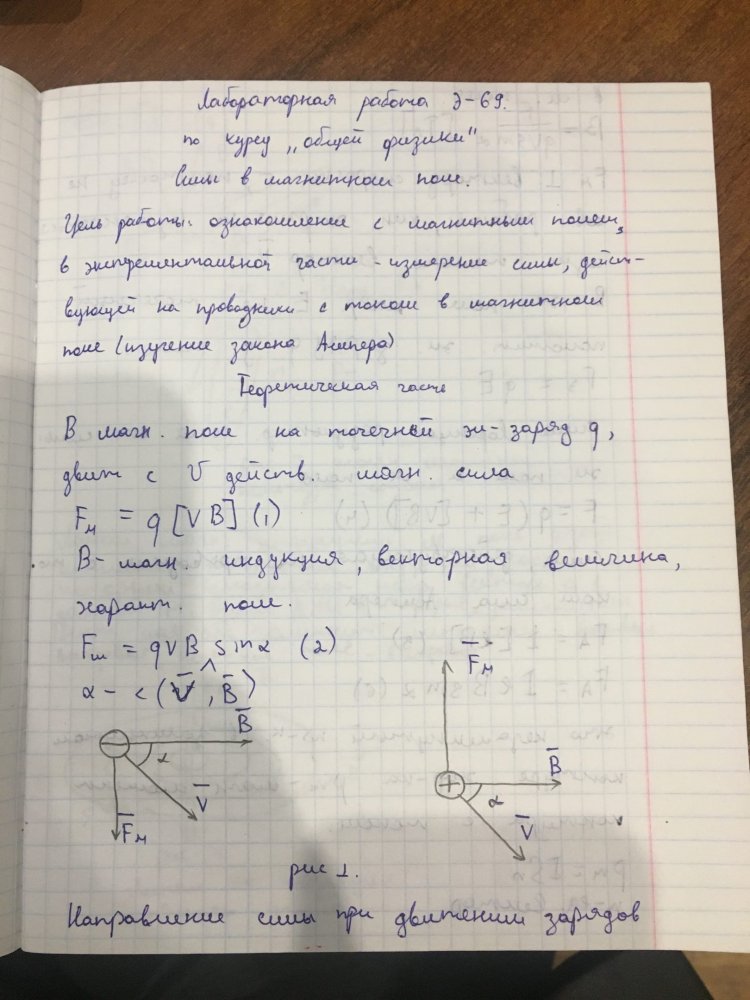 Лабораторная работа Э-69.
по курсу „общей физики"
Силы в магнитном поле.
Цель работы: ознакомление с магнитным полем,
в экспрементальной части - измерение силы, дейст-
вующей на проводники с током в магнитном
поле (изучение закона Ампера)
Теоретическая часть
В магн. поле на точечный эл-заряд q,
движ с V действ. магн. сила
Fм = q [V B] (1)
B- магн. индукция, векторная величина,
характ. поле.
Fм = qVB sinα (2)
α - < (V̅ ^, B̅)
F̅м
B̅
−
α
V̅
F̅м
B̅
+
α
V̅
рис 1.
Направление силы при движении зарядов